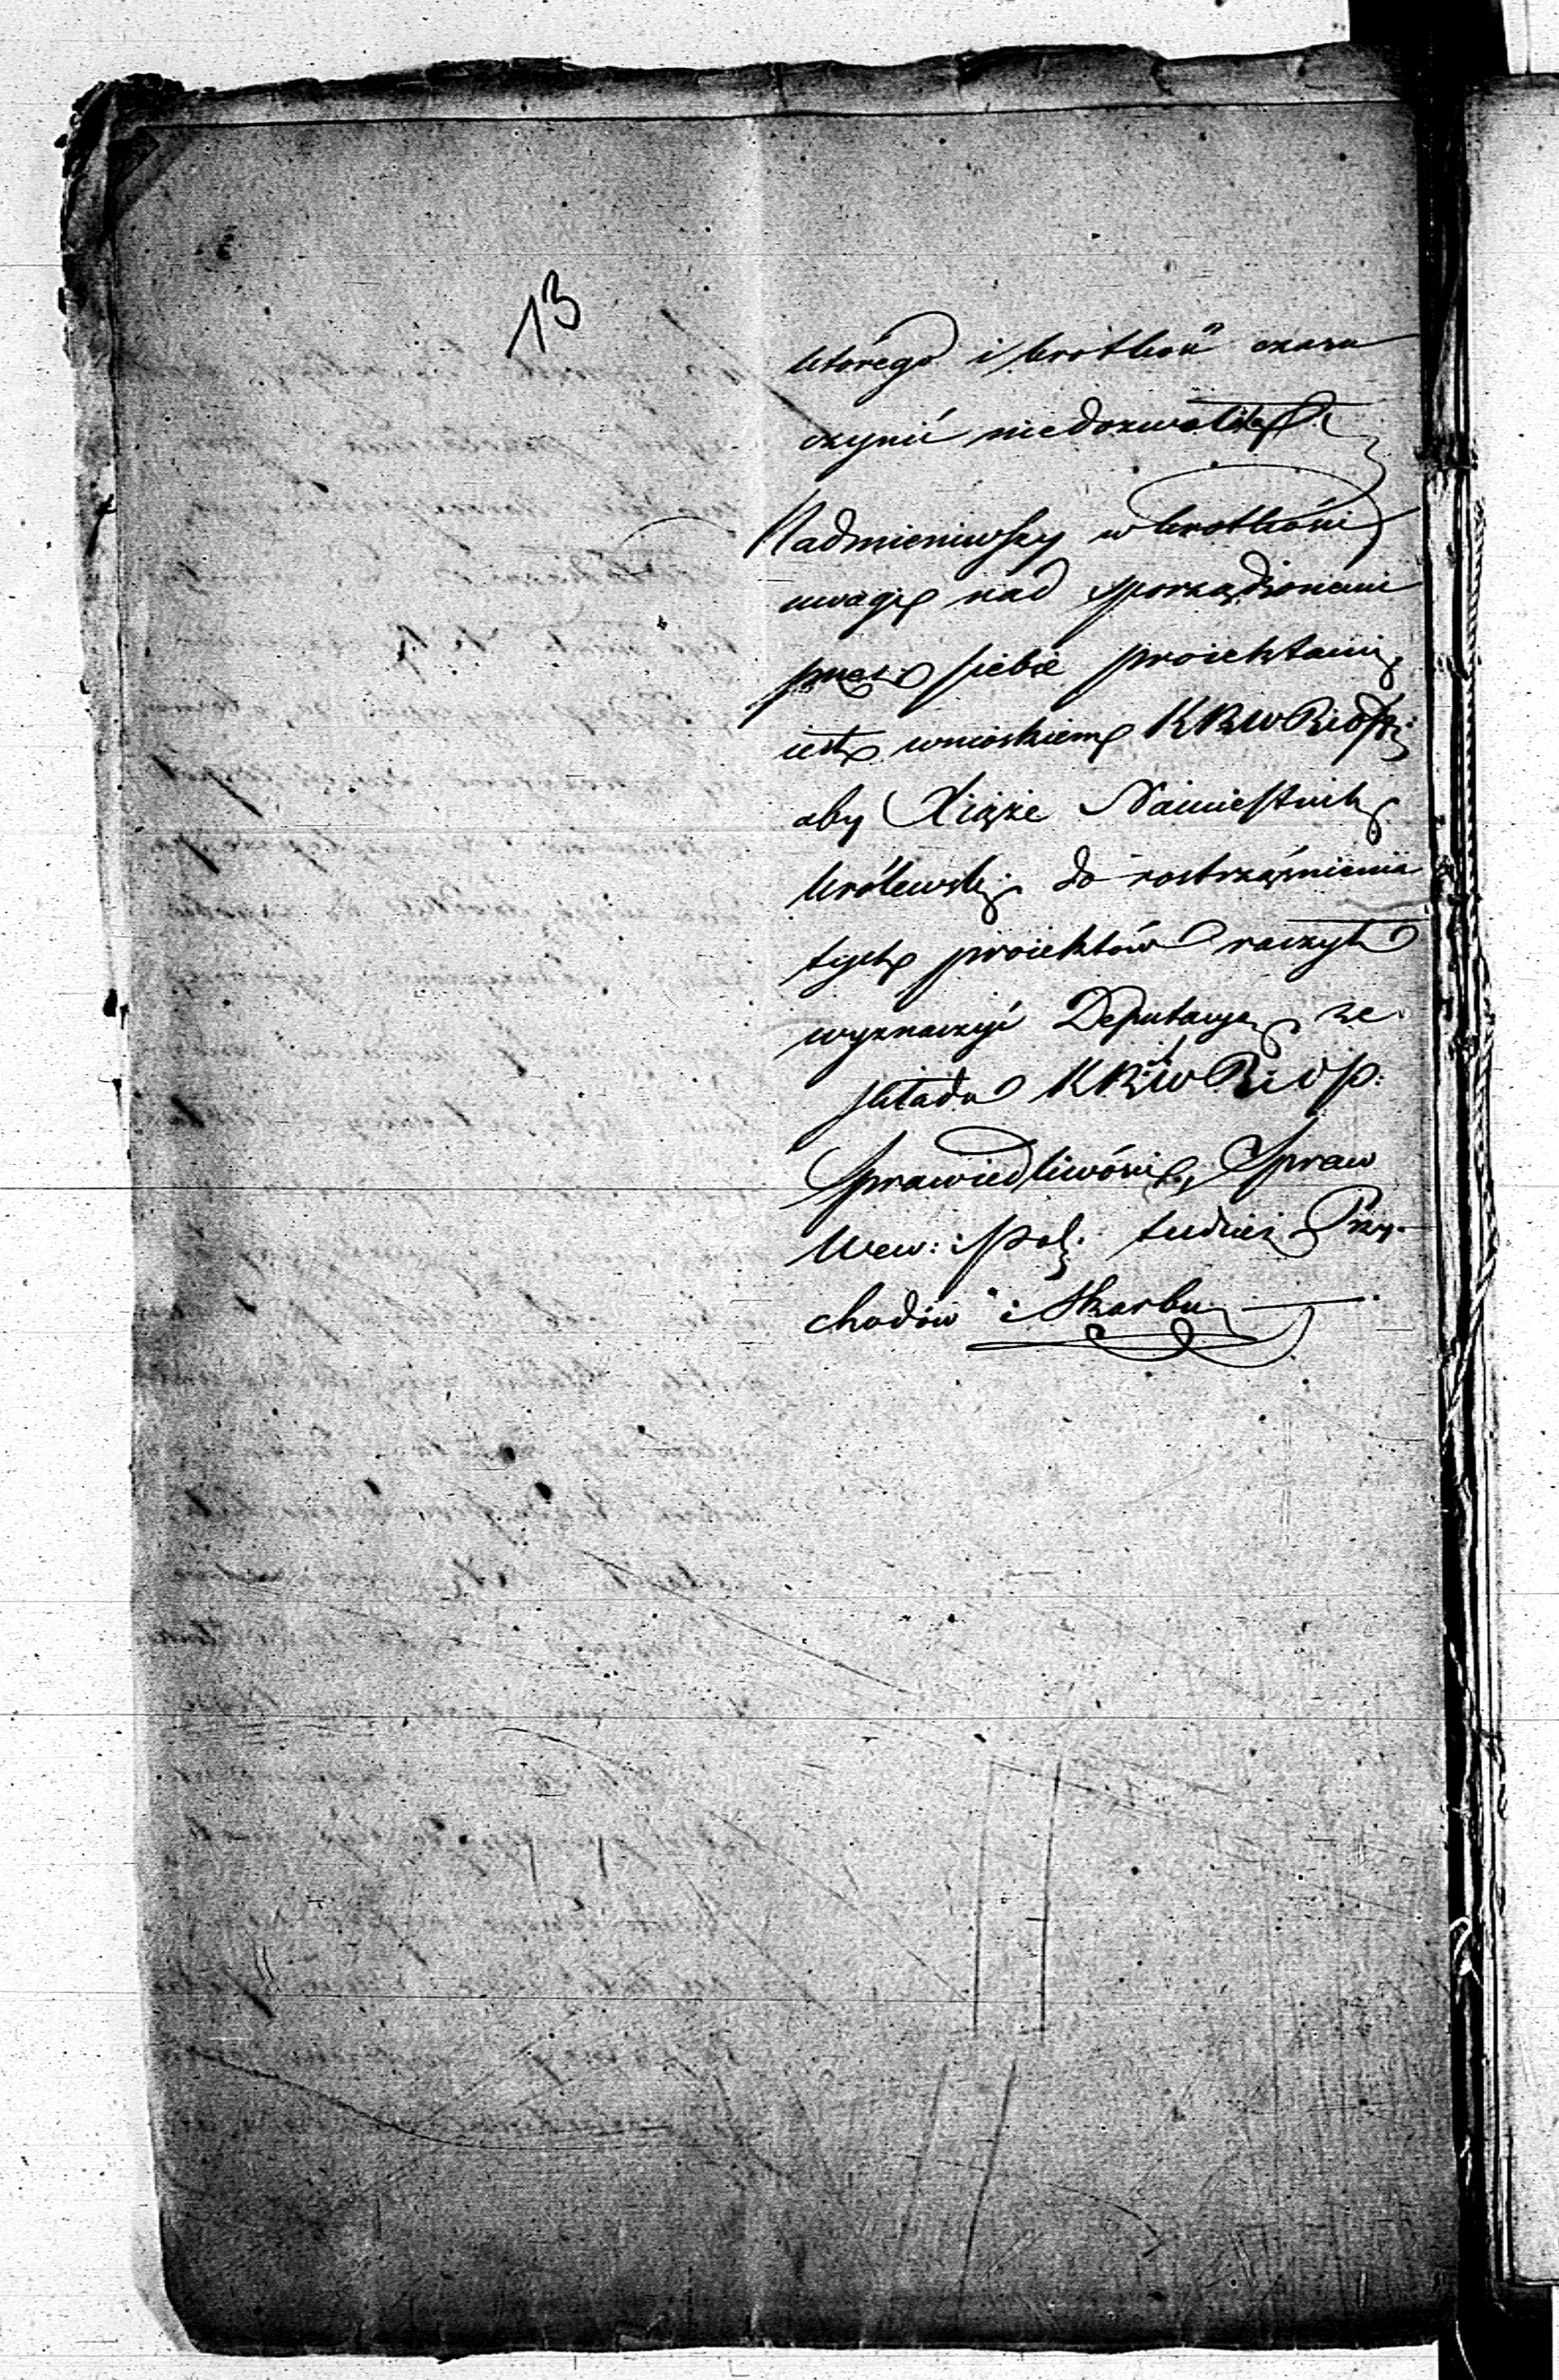 13
którego i krótkość czasu
czynić niedozwoliła.
Nadmieniwszy w krótkości
uwagi nad sporządzonemi
przez siebie proiektami
iest wnioskiem KRWRiOP:
aby Xiąże Namiestnik
Królewski do rostrząśnienia
tych proiektów raczył
wyznaczyć Deputacyę ze
składu KRWRiOP:
Sprawiedliwości, Spraw
Wew: i Pol: tudzież Przy-
chodów i Skarbu